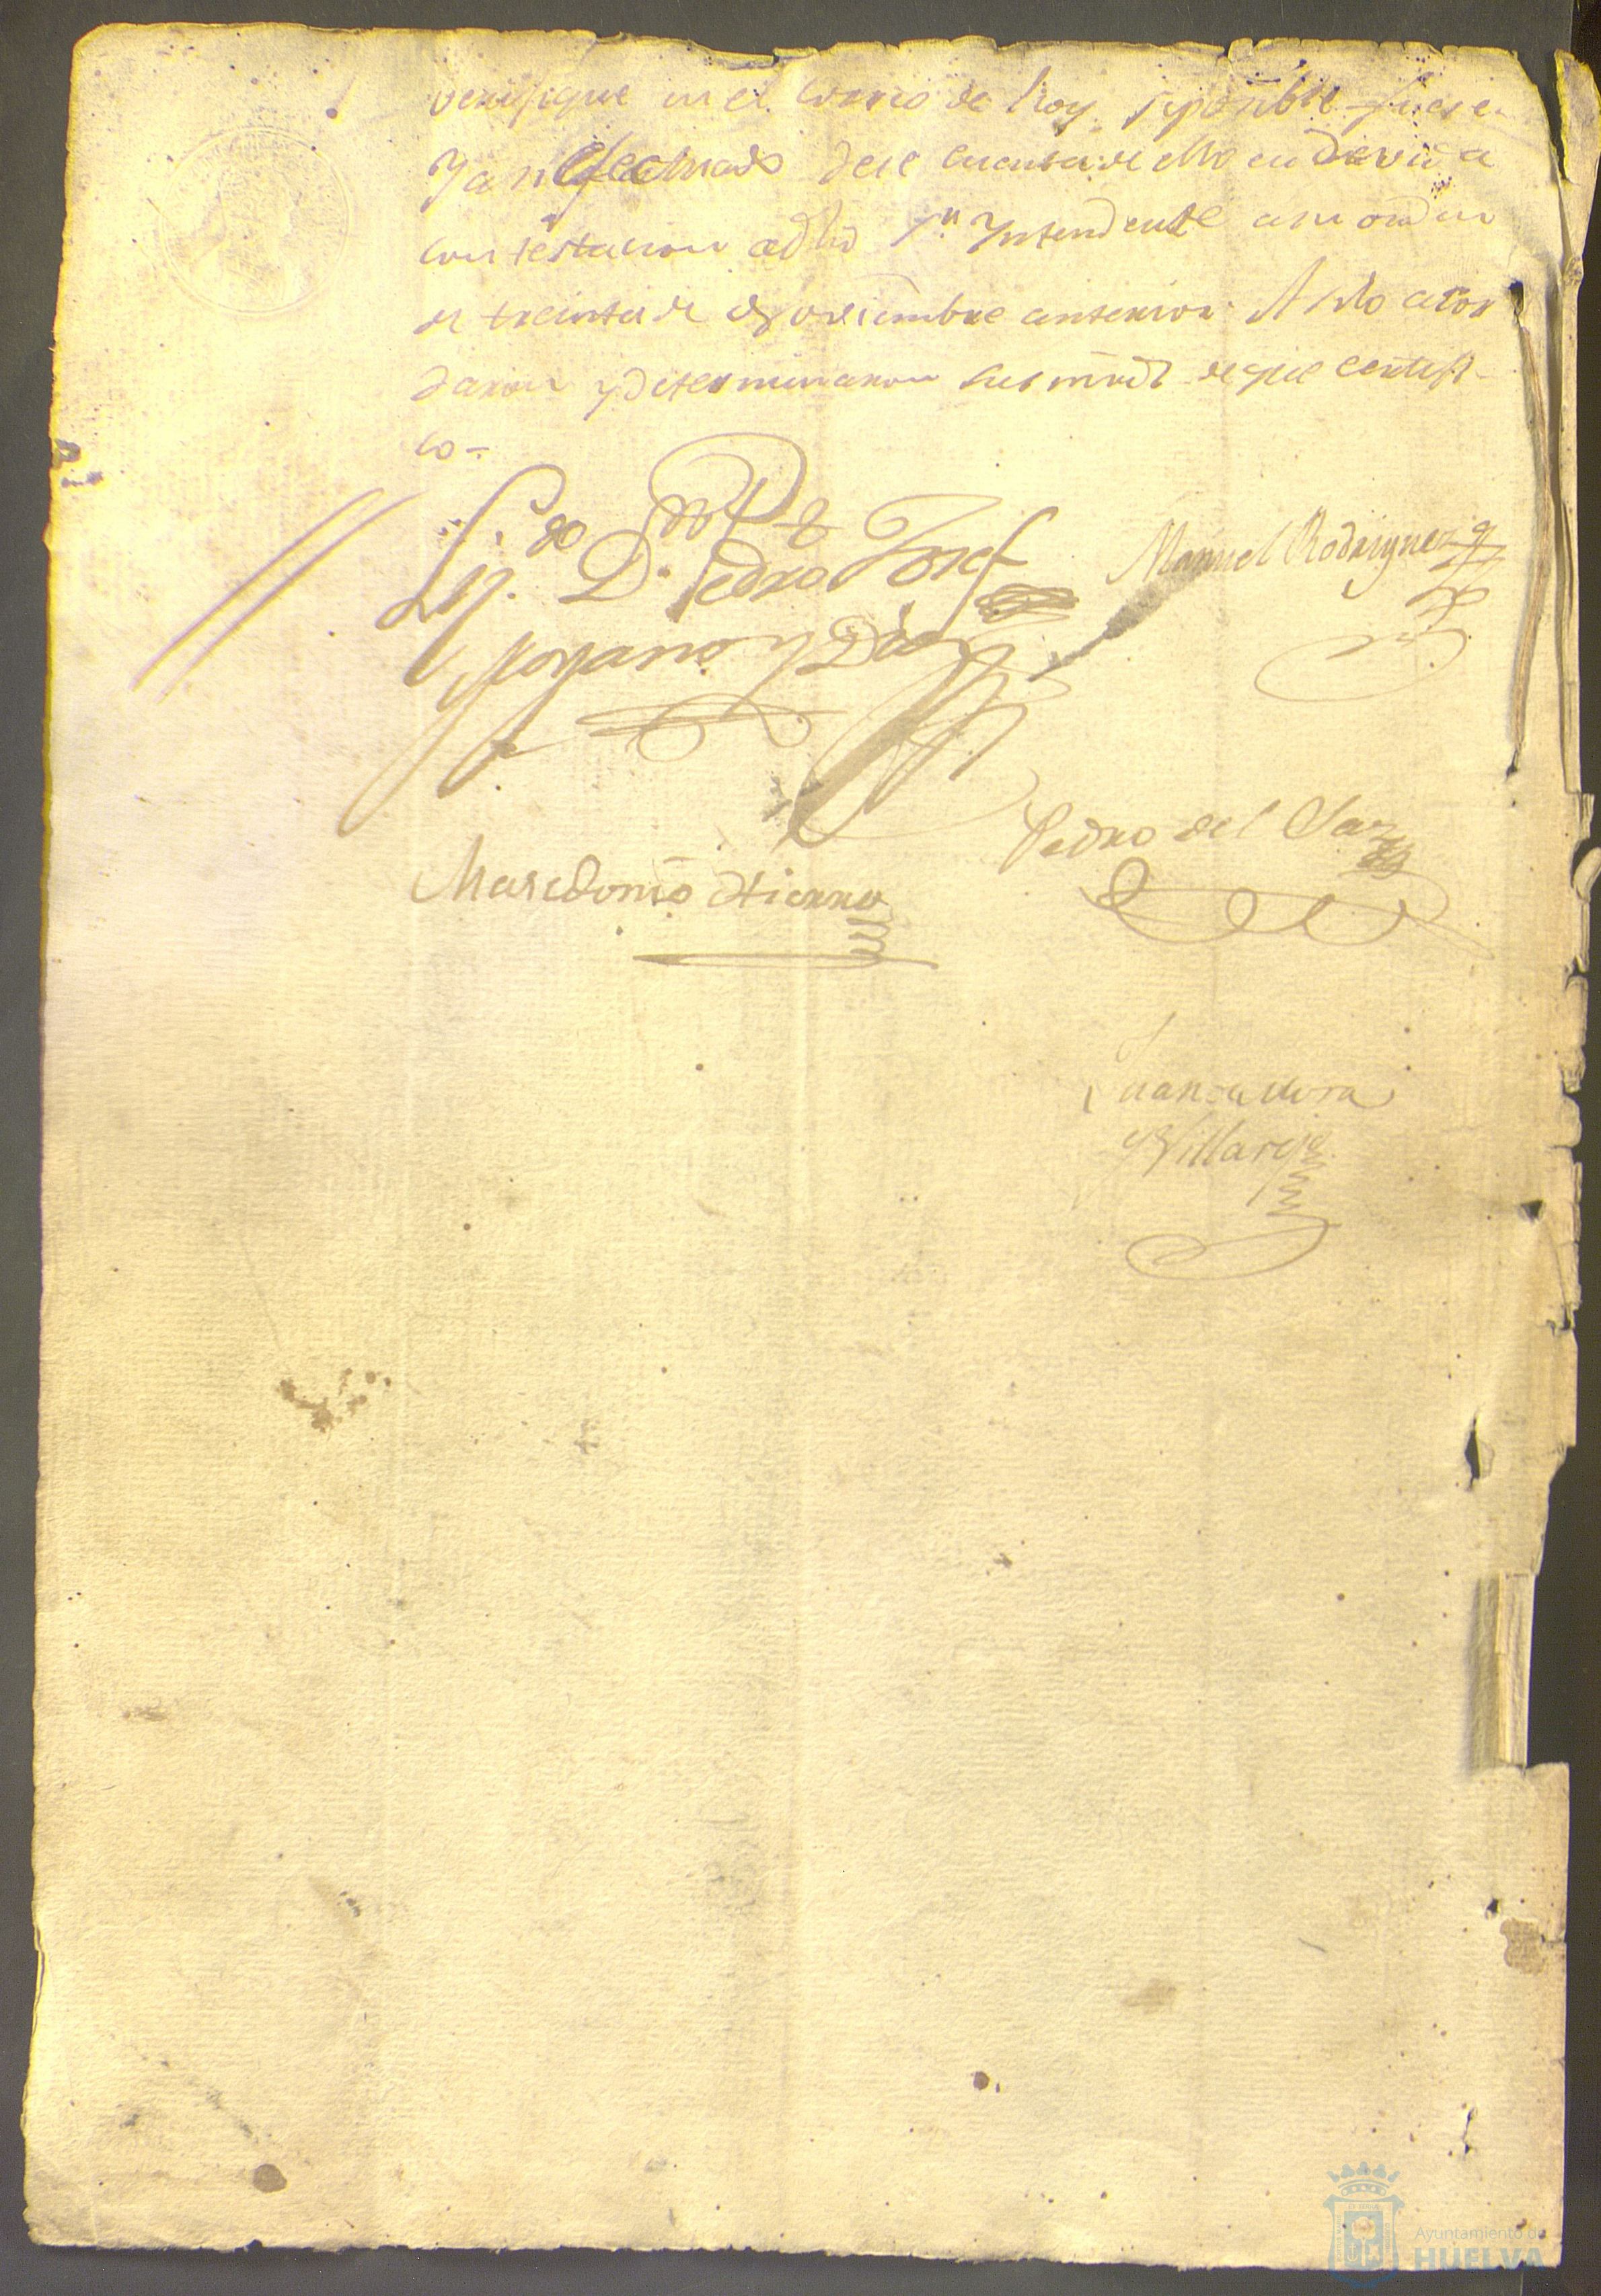 verifique en el correo de hoy, si posible fuese
Y an efectuado dese cuenta de ello en devida
contestacion a dho Sr. Yntendente a su orden
de treinta de Noviembre anterior. Asi lo acor
daron y determinaron sus mrds de que certifi-
co =
Lizdo Dn. Pedro Josef
Moyano y Diaz
Manuel Rodriguez
Pedro del Saz
Masedonio Hierro
Juan de Mora
y Villarejo
Ayuntamiento de
HUELVA